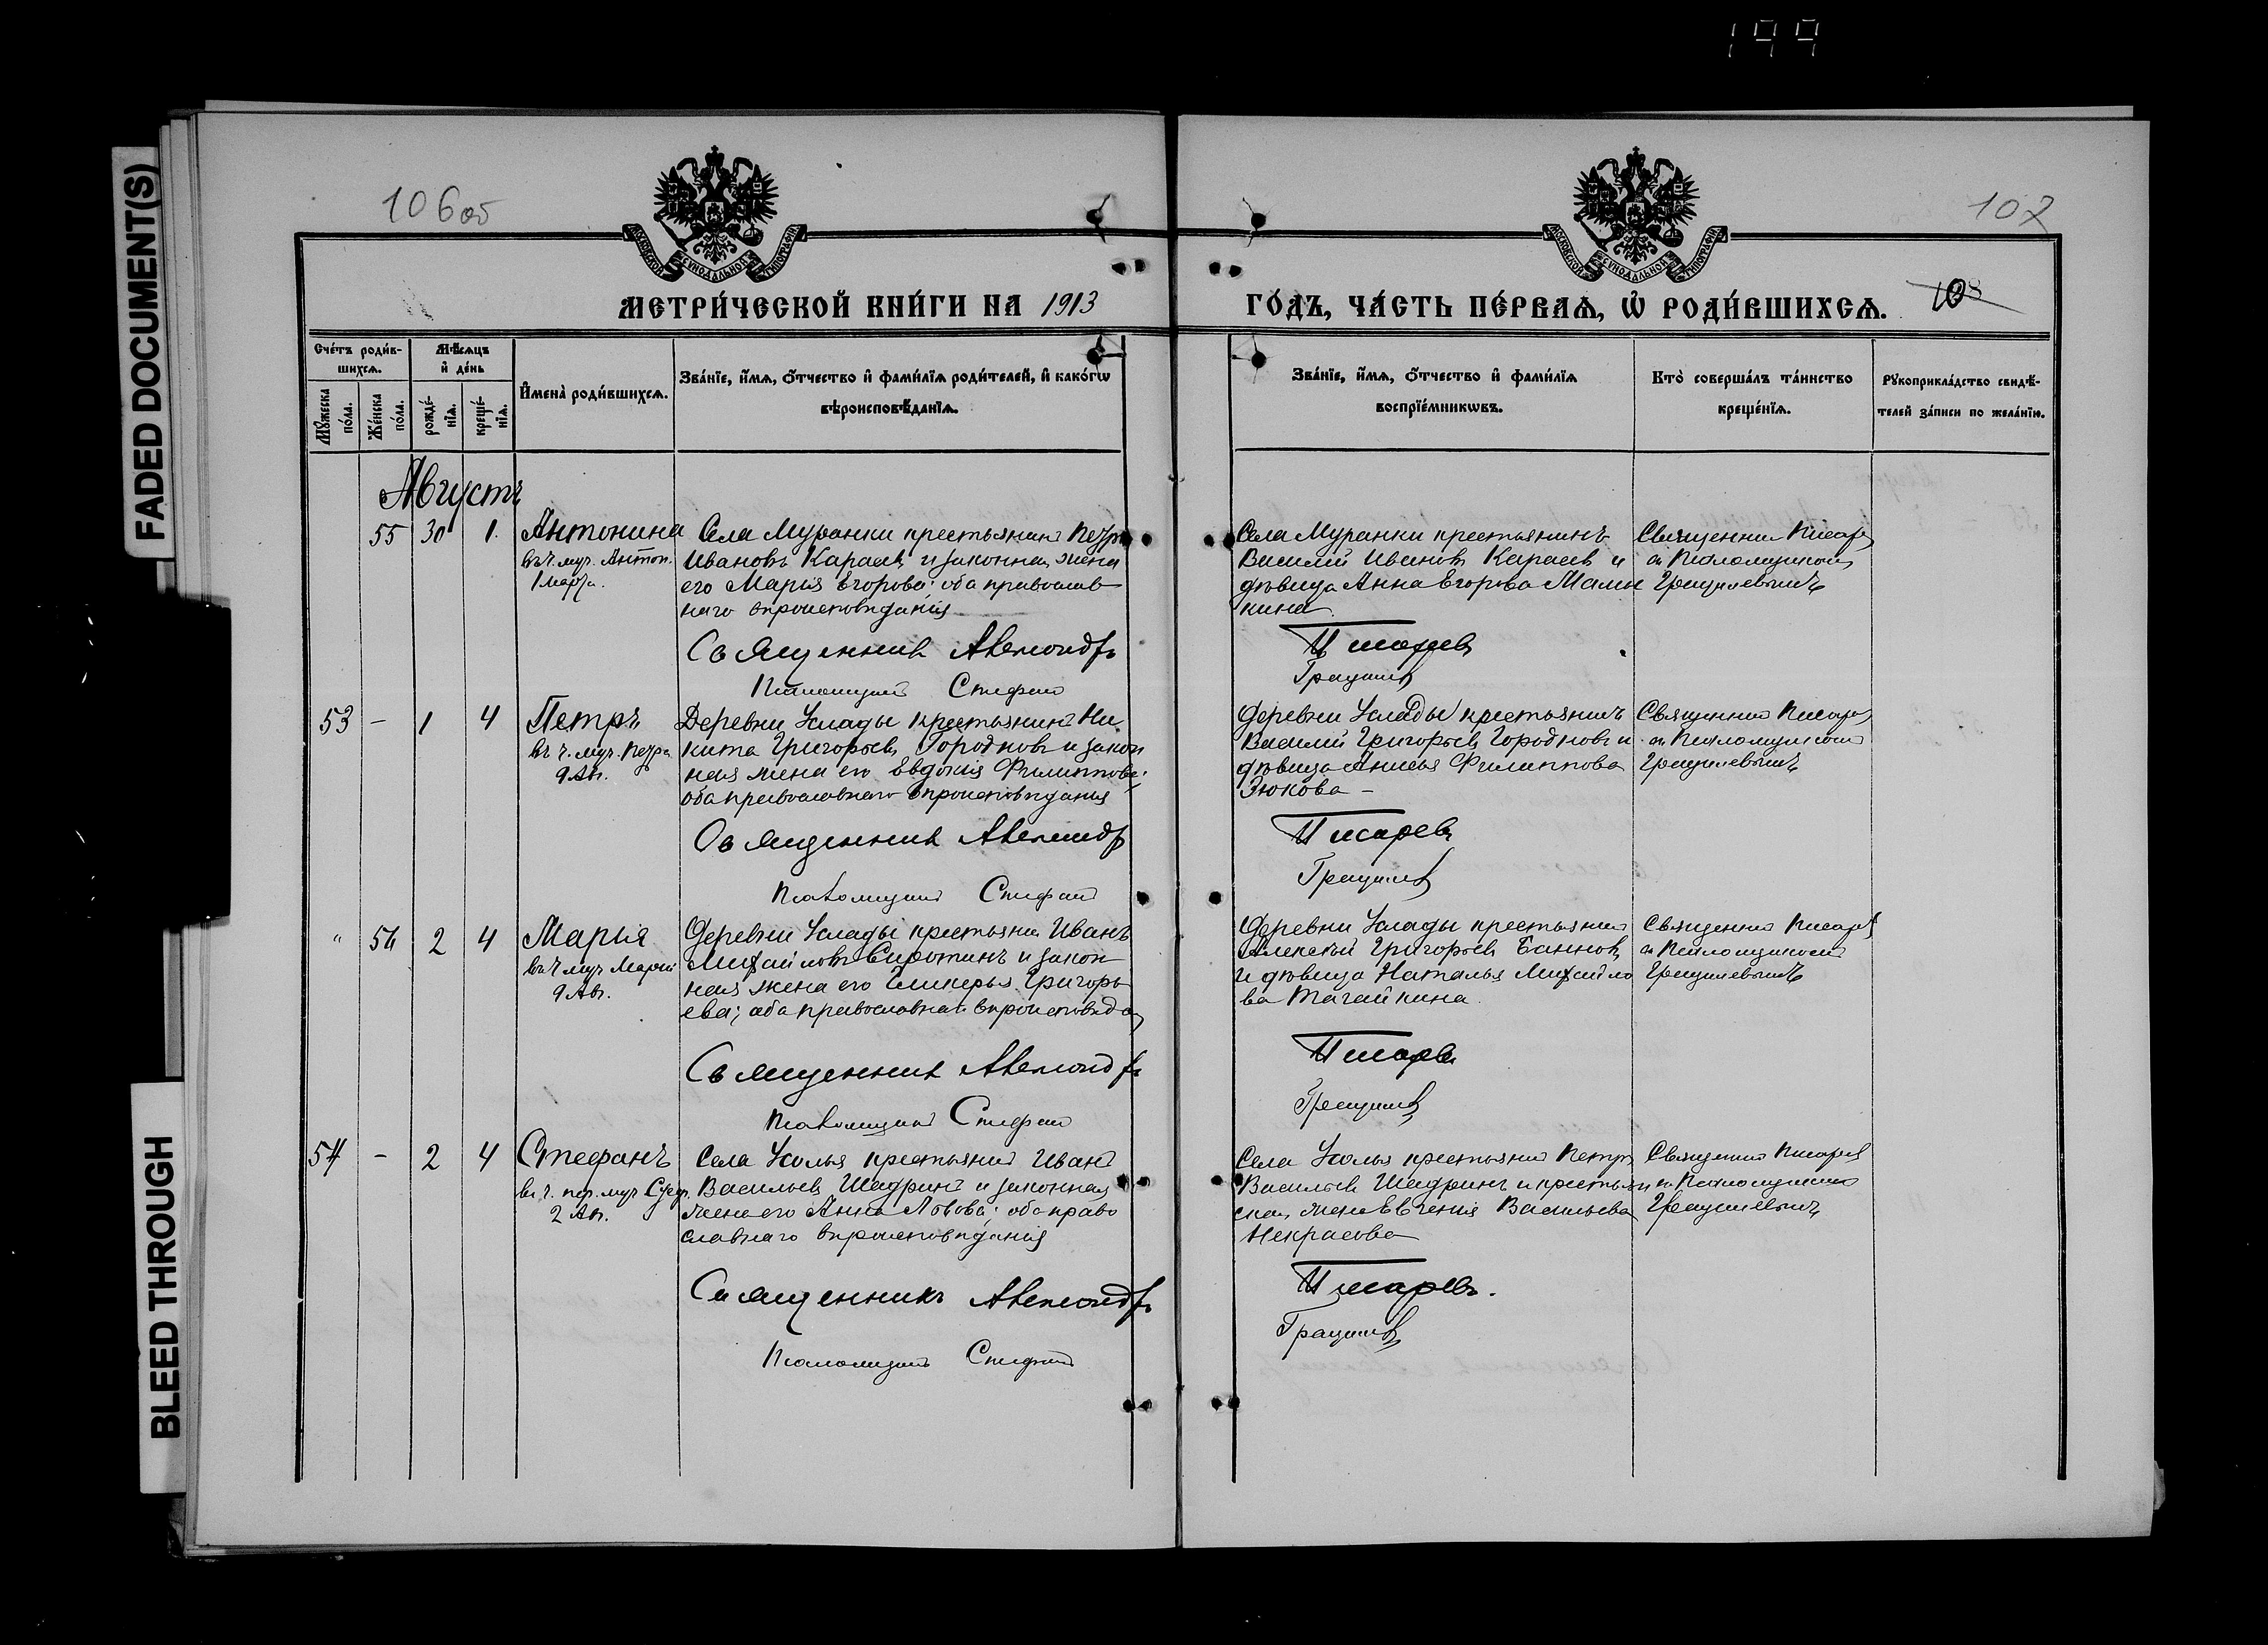 199
FADED DOCUMENT(S)
BLEED THROUGH
106об
107
МОСКОВСКОЙ СѴНОДАЛЬНОЙ ТИПОГРАФІИ
МОСКОВСКОЙ СѴНОДАЛЬНОЙ ТИПОГРАФІИ
МЕТРИ́ЧЕСКОЙ КНИ́ГИ НА 1913
ГО́ДЪ, ЧА́СТЬ ПЕ́РВАѦ, Ѡ҆ РОДИ́ВШИХСѦ. 108
Сче́тъ роди́в-
шихсѧ.
Мꙋ́жеска по́ла.
Же́нска по́ла.
Мѣ́сѧцъ
и҆ де́нь
рожде́-
нїѧ.
креще́-
нїѧ.
И҆мена̀ роди́вшихсѧ.
Зва́нїе, и҆́мѧ, ѻ҆́тчество и҆ фами́лїѧ роди́телей, и҆ како́гѡ
вѣроисповѣ́данїѧ.
Зва́нїе, и҆́мѧ, ѻ҆́тчество и҆ фами́лїѧ
воспрїе́мникѡвъ.
Кто̀ соверша́лъ та́инство
креще́нїѧ.
Рꙋкоприкла́дство свидѣ́-
телей за́писи по жела́нїю.
Августъ
55 30 1. Антонина
въ ч. муч. Антон.
1 Марта.
Села Муранки крестьянинъ Петръ
Ивановъ Караевъ и законная жена
его Марія Егорова; оба православ
наго вѣроисповѣданія
Священникъ Александръ
Псаломщикъ Стефанъ
Села Муранки крестьянинъ
Василій Ивановъ Караевъ и
дѣвица Анна Егорова Мамы
кина
Писаревъ
Священникъ Писаревъ
съ Псаломщикомъ
53 - 1 4 Петръ
въ ч. муч. Петра
9 Ав.
Деревни Услады крестьянинъ Ни
кита Григорьевъ Городновъ и закон
ная жена его Евдокія Филиппова;
оба православнаго вѣроисповѣданія
Священникъ Александръ
Псаломщикъ Стефанъ
Деревни Услады крестьянинъ
Василій Григорьевъ Городновъ и
дѣвица Анисья Филиппова
Зюкова -
Писаревъ
Священникъ Писаревъ
съ Псаломщикомъ
" 56 2 4 Марія
въ ч муч Маріи
9 Ав.
Деревни Услады крестьянинъ Иванъ
Михайловъ Сиротинъ и закон
ная жена его Гликерья Григорь
ева; оба православнаго вѣроисповѣда
Священникъ Александръ
Псаломщикъ Стефанъ
Деревни Услады крестьянинъ
Алексѣй Григорьевъ Баннов
и дѣвица Наталья Михайло
ва Тагайкина
Писаревъ
Священникъ Писаревъ
съ Псаломщикомъ
54 - 2 4 Стефанъ
въ ч. пер. муч Стеф.
2 Ав.
Села Усолья крестьянинъ Иванъ
Васильевъ Шадринъ и законная
жена его Анна Львова; оба право
славнаго вѣроисповѣданія
Священникъ Александръ
Псаломщикъ Стефанъ
Села Усолья крестьянинъ Петръ
Васильевъ Шадринъ и крестьян
ская жена Евгенія Васильева
Некрасова
Писаревъ.
Священникъ Писаревъ
съ Псаломщикомъ